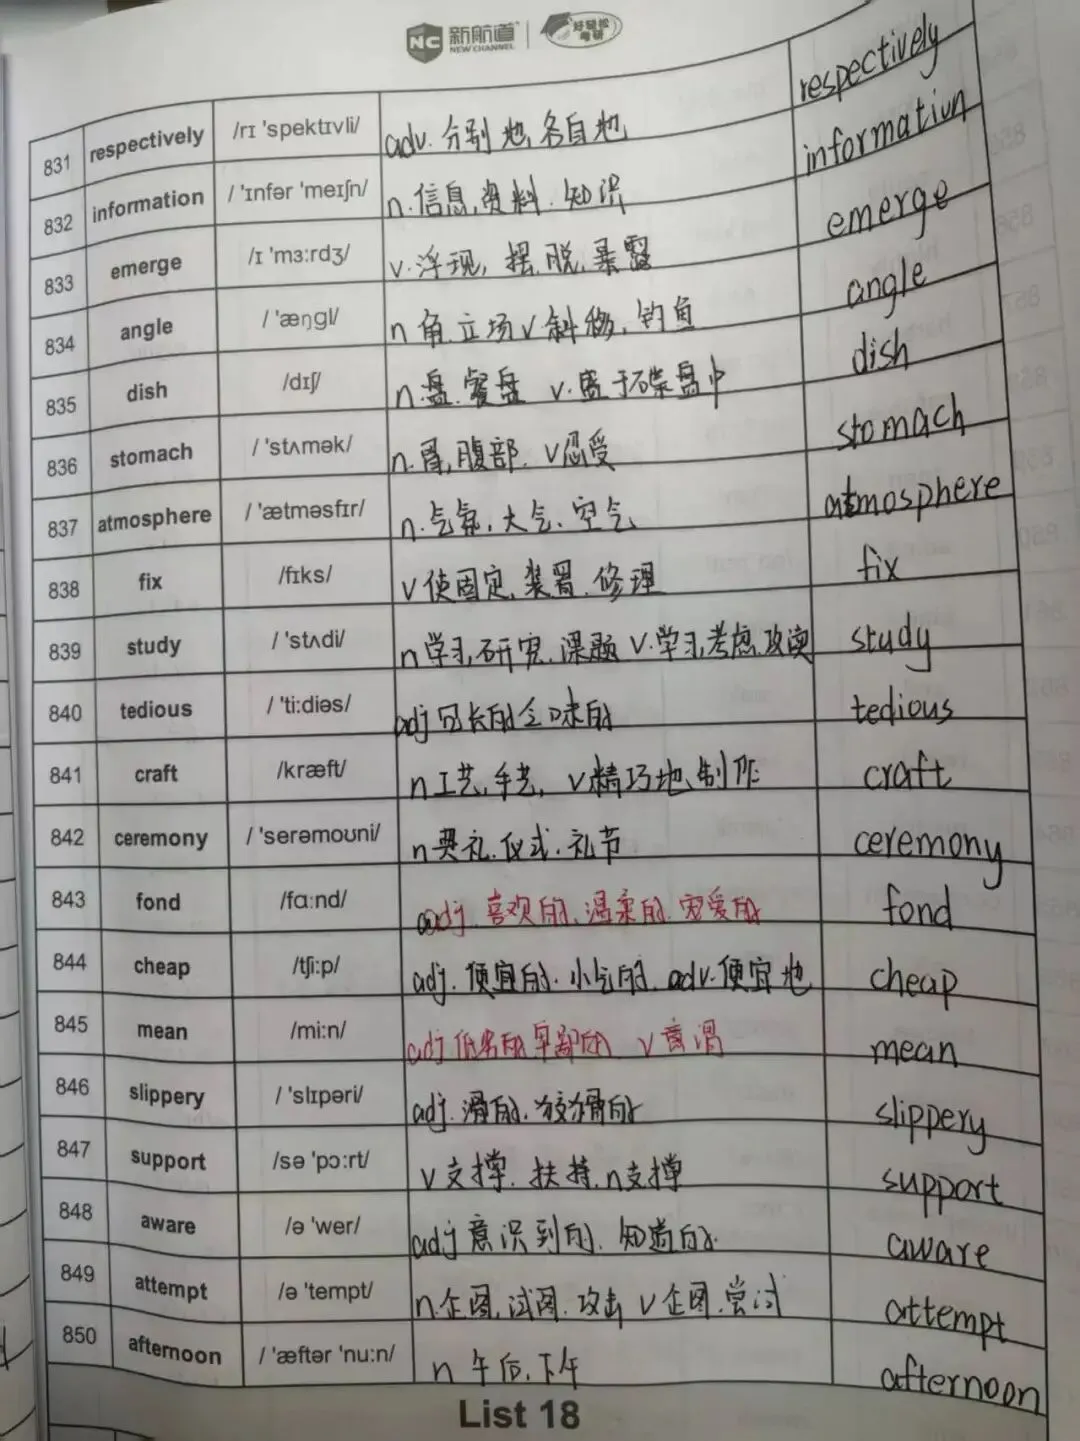 NC 新航道 NEW CHANNEL 好轻松考研
831 respectively /rɪ 'spektɪvli/ adv. 分别地,各自地 respectively
832 information / 'ɪnfər 'meɪʃn/ n.信息,资料.知识 information
833 emerge /ɪ 'mɜ:rdʒ/ v.浮现,摆脱,暴露 emerge
834 angle / 'æŋgl/ n 角.立场 v 斜移,钓鱼 angle
835 dish /dɪʃ/ n.盘.餐盘 v.盛于碟盘中 dish
836 stomach / 'stʌmək/ n.胃,腹部. v忍受 stomach
837 atmosphere / 'ætməsfɪr/ n.气氛,大气.空气 atmosphere
838 fix /fɪks/ v 使固定,装置.修理 fix
839 study / 'stʌdi/ n 学习,研究.课题 v.学习,考虑.攻读 study
840 tedious / 'ti:diəs/ adj 冗长的 tedious
841 craft /kræft/ n工艺,手艺, v精巧地制作 craft
842 ceremony / 'serəmoʊni/ n典礼.仪式.礼节 ceremony
843 fond /fɑ:nd/ adj. 喜欢的,温柔的.宠爱的 fond
844 cheap /tʃi:p/ adj. 便宜的.小气的. adv.便宜地 cheap
845 mean /mi:n/ adj 低劣的 卑鄙的 v 意谓 mean
846 slippery / 'slɪpəri/ adj. 滑的.狡猾的 slippery
847 support /sə 'pɔ:rt/ v 支撑. 扶持.n支撑 support
848 aware /ə 'wer/ adj 意识到的.知道的. aware
849 attempt /ə 'tempt/ n.企图,试图.攻击 v 企图.尝试 attempt
850 afternoon / 'æftər 'nu:n/ n 午后.下午 afternoon
List 18